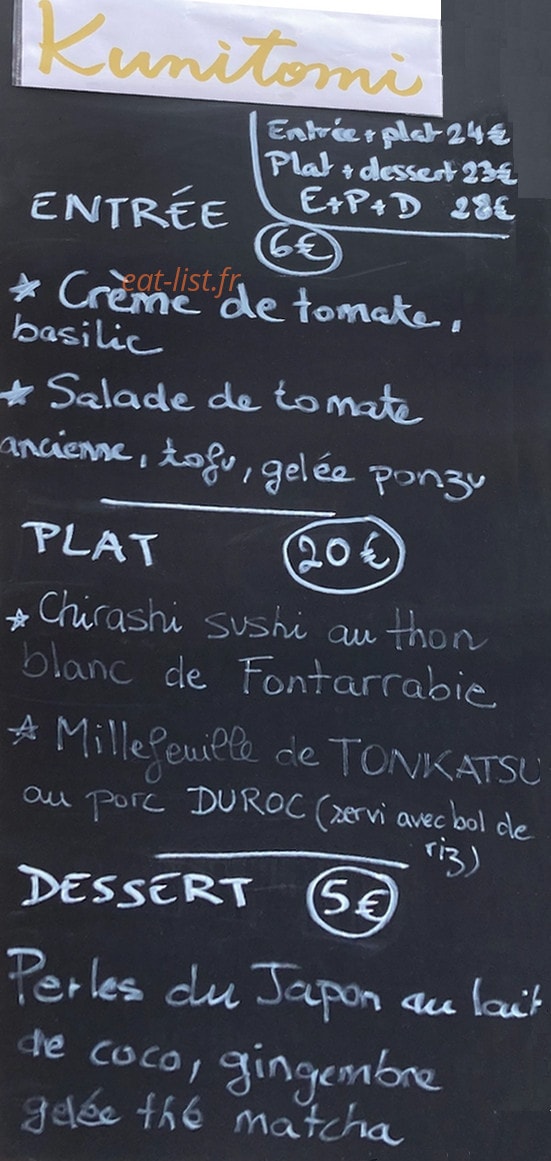 Kunitomi
Entrée + plat 24€
Plat + dessert 23€
E+P+D 28€
ENTRÉE
6€
eat-list.fr
* Crème de tomate,
basilic
* Salade de tomate
ancienne, tofu, gelée ponzu
PLAT 20€
* Chirashi sushi au thon
blanc de Fontarrabie
* Millefeuille de TONKATSU
au porc DUROC (servi avec bol de
riz)
DESSERT 5€
Perles du Japon au lait
de coco, gingembre
gelée thé matcha